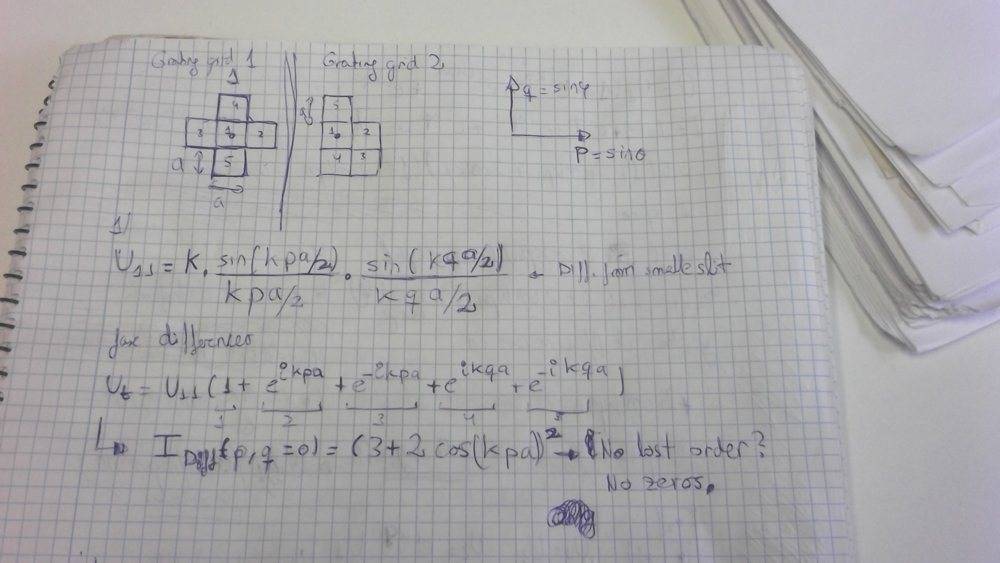 Grating grid 1
Grating grid 2
4
3 1 2
5
a
a
5
1 2
4 3
a
q = sinφ
p = sinθ
1)
U₁₁ = K. sin(kpa/2)/kpa/2 · sin(kqa/2)/kqa/2 ← Diff. from slit
differences
Uₜ = U₁₁ (1 + e^ikpa + e^-ikpa + e^ikqa + e^-ikqa)
1 2 3 4 5
↳ I Diff(p, q=0) = (3+2 cos(kpa))² → No lost order?
No zeros.